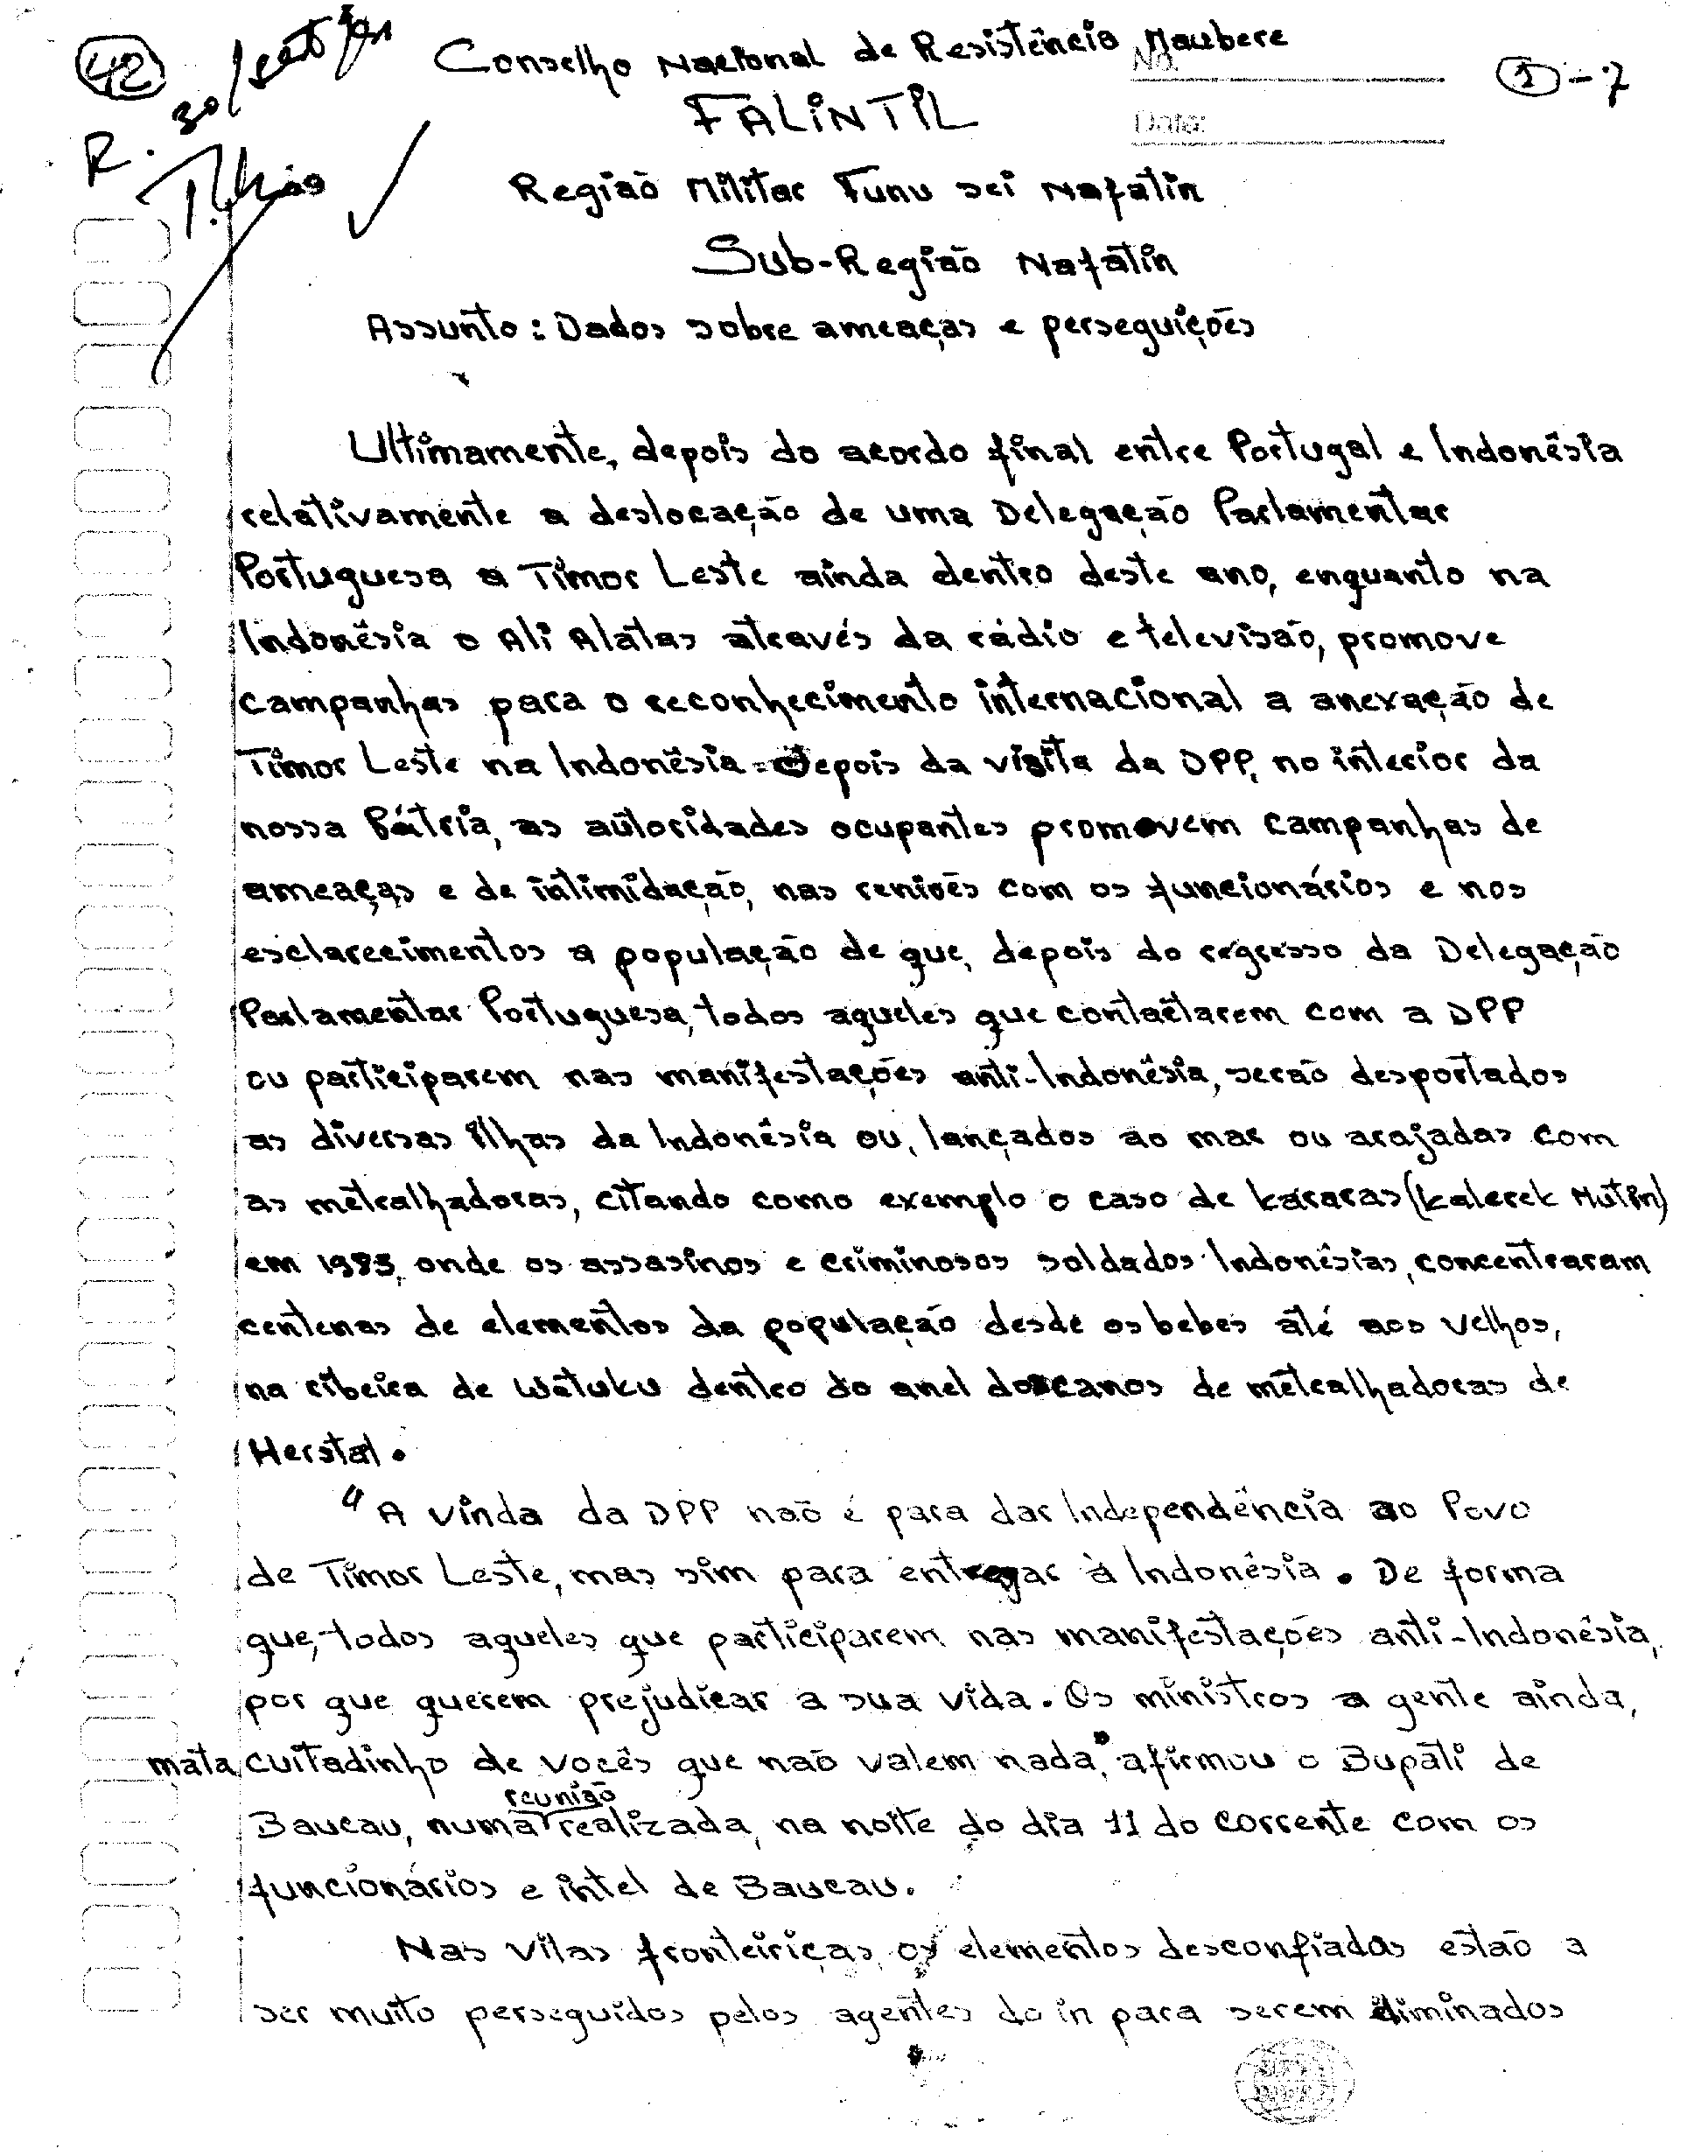 42
R. 30/set/91
Conselho Nacional de Resistência Maubere
No.
1 - 7
FALINTIL
Data:
Região Militar Funu sei Nafatin
Sub-Região Nafatin
Assunto: Dados sobre ameaças e perseguições
Ultimamente, depois do acordo final entre Portugal e Indonêsia
relativamente a deslocação de uma Delegação Parlamentar
Portuguesa a Timor Leste ainda dentro deste ano, enquanto na
Indonêsia o Ali Alatas através da rádio e televisão, promove
campanhas para o reconhecimento internacional a anexação de
Timor Leste na Indonêsia depois da visita da DPP, no interior da
nossa Pátria, as autoridades ocupantes promovem campanhas de
ameaças e de intimidação, nas reniões com os funcionários e nos
esclarecimentos a população de que, depois do regresso da Delegação
Parlamentar Portuguesa, todos aqueles que contactarem com a DPP
ou participarem nas manifestações anti-Indonêsia, serão desportados
as diversas ilhas da Indonêsia ou, lançados ao mar ou arajadas com
as metralhadoras, citando como exemplo o caso de kararas (kalerek Mutin)
em 1983, onde os assasinos e criminosos soldados Indonêsias, concentraram
centenas de elementos da população desde os bebes até aos velhos,
na ribeira de Wetuku dentro do anel dos canos de metralhadoras de
Herstal.
"A vinda da DPP não é para dar Independência ao Povo
de Timor Leste, mas sim para entregar à Indonêsia. De forma
que, todos aqueles que participarem nas manifestações anti-Indonêsia,
por que querem prejudicar a sua vida. Os ministros a gente ainda,
mata cuitadinho de vocês que não valem nada," afirmou o Bupati de
reunião
Baucau, numa realizada, na noite do dia 11 do corrente com os
funcionários e intel de Baucau.
Nas vilas fronteiriças, os elementos desconfiadas estão a
ser muito perseguidos pelos agentes do in para serem eliminados